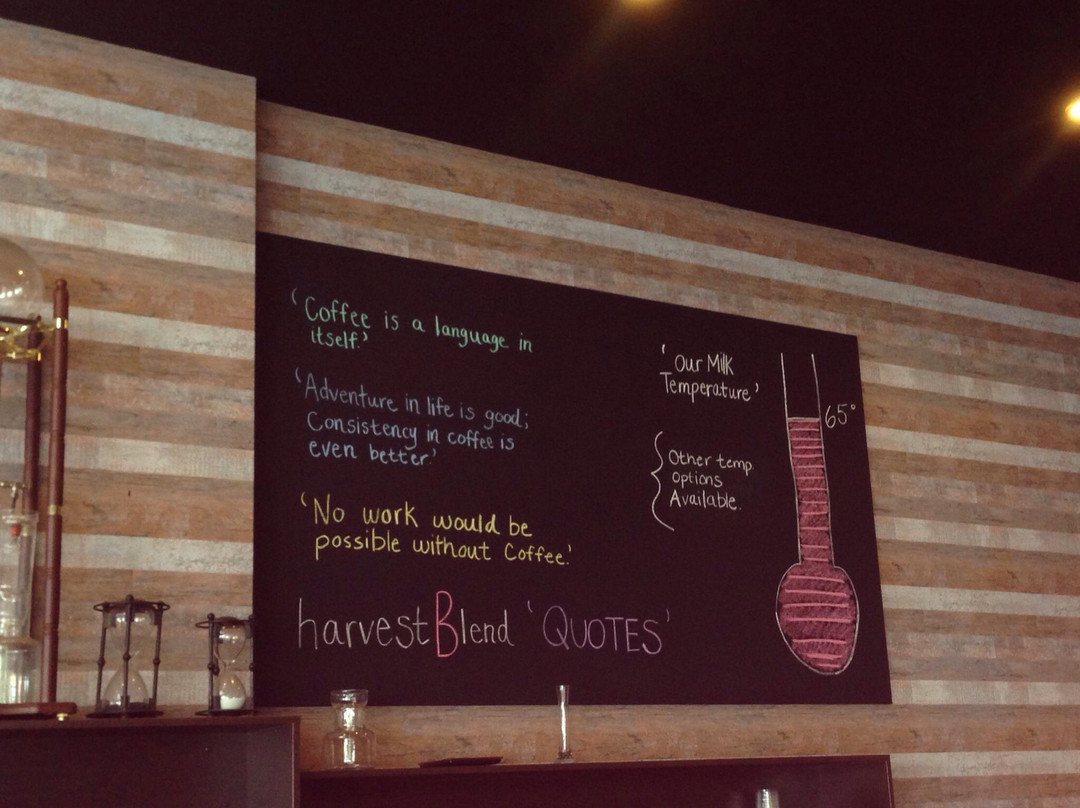 'Coffee is a language in
itself.'
'Adventure in life is good;
Consistency in coffee is
even better.'
'No work would be
possible without Coffee.'
harvestBlend 'QUOTES'
'Our Milk
Temperature'
65°
Other temp
Options
Available.